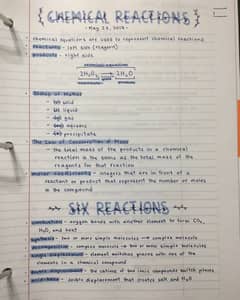 CHEMICAL REACTIONS
- May 23, 2018 -
chemical equations are used to represent chemical reactions
reactants - left side (reagent)
products - right side
chemical equation
2H₂O₂ → 2H₂O
States of Matter
- (s) solid
- (l) liquid
- (g) gas
- (aq) aqueous
- (s) precipitate
The Law of Conservation of Mass
- the total mass of the products in a chemical
reaction is the same as the total mass of the
reagents for that reaction
molar coefficients - integers that are in front of a
reactant or product that represent the number of moles
in the compound
SIX REACTIONS
combustion - oxygen bonds with another element to form CO₂,
H₂O, and heat
synthesis - two or more simple molecules → complex molecule
decomposition - complex molecule → two or more simple molecules
single displacement - element switches places with one of the
elements in a chemical compound
double displacement - the cations of two ionic compounds switch places
acid-base - double displacement that creates salt and H₂O